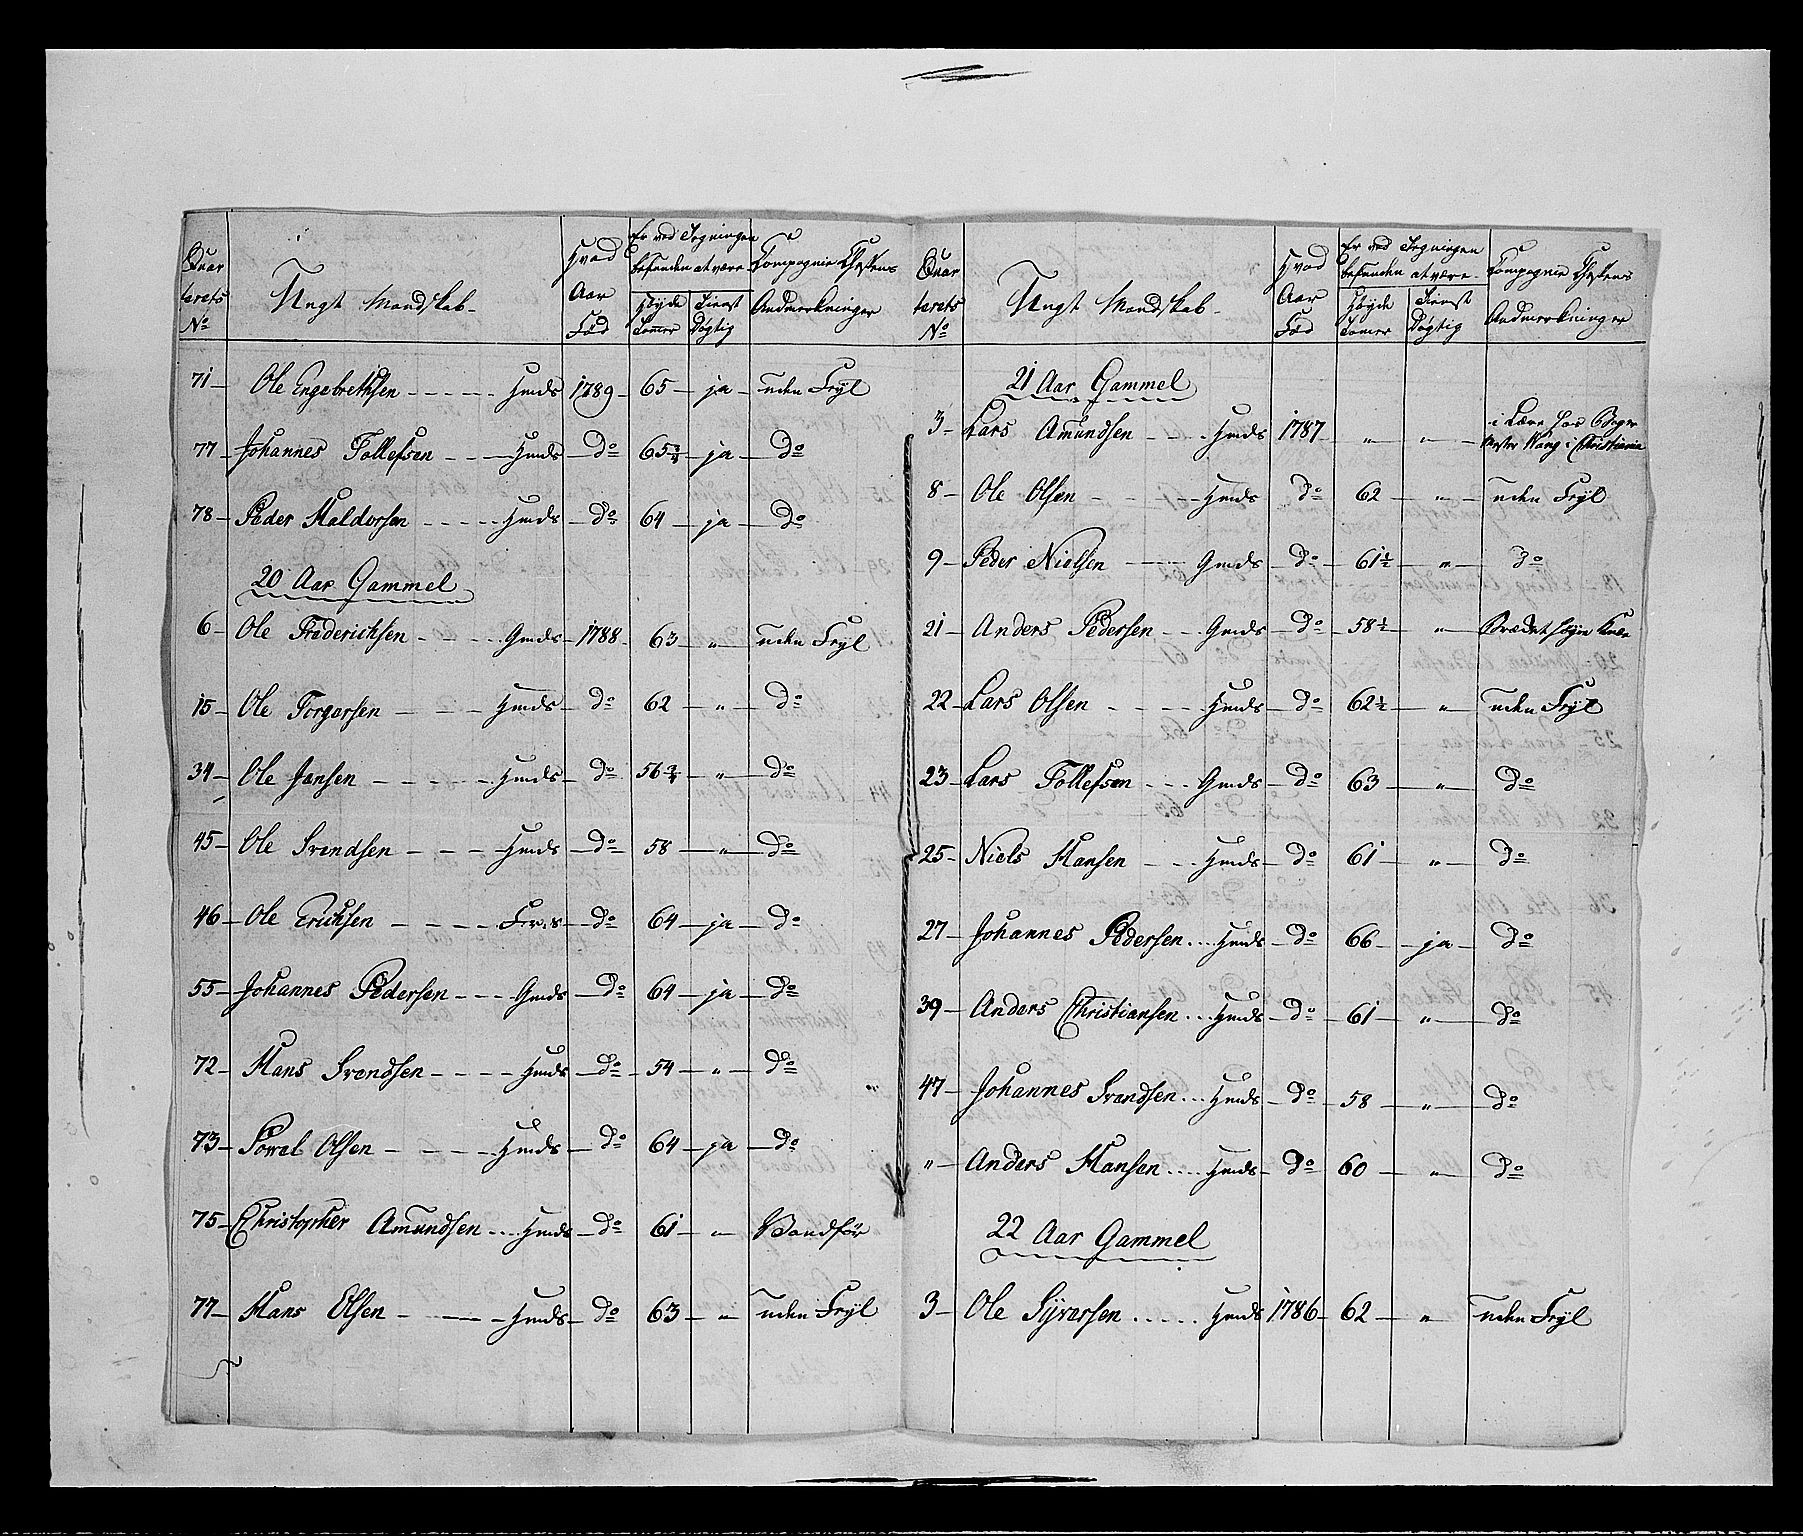 Quar
terets
No
Ungt Mandskab
Hvad
Aar
Fød
Er ved Segningen
befunden at være
Høyde
Tomer
Tienst
Dygtig
Compagnie Chefens
Andmerkninger
71 Ole Engebrethsen Hmds 1789 65 ja uden Feyl
77 Johannes Tollefsen Hmds Do 65¾ ja Do
78 Peder Haldorsen Hmds Do 64 ja Do
20 Aar Gammel
6 Ole Frederichsen Gmds 1788 63 " uden Feyl
15 Ole Torgersen Hmds Do 62 " Do
34 Ole Jansen Hmds Do 56¾ " Do
45 Ole Svendsen Hmds Do 58 " Do
46 Ole Erichsen Do 64 ja Do
55 Johannes Pedersen Gmds Do 64 ja Do
72 Hans Svendsen Hmds Do 54 " Do
73 Powel Olsen Hmds Do 64 ja Do
75 Christopher Amundsen Hmds Do 61 " Vandfør
77 Hans Olsen Hmds Do 63 " uden Feyl
Quar
terets
No
Ungt Mandskab
Hvad
Aar
Fød
Er ved Segningen
befunden at være
Høyde
Tomer
Tienst
Dygtig
Compagnie Chefens
Andmerkninger
21 Aar Gammel
3 Lars Amundsen Hmds 1787 " " i Lære hos
Wang i Christiania
8 Ole Olsen Hmds Do 62 " uden Feyl
9 Peder Nielsen Gmds Do 61½ " Do
21 Anders Pedersen Gmds Do 58½ "
22 Lars Olsen Hmds Do 62½ " uden Feyl
23 Lars Tollefsen Gmds Do 63 " Do
25 Niels Hansen Hmds Do 61 " Do
27 Johannes Pedersen Hmds Do 66 ja Do
39 Anders Christiansen Hmds Do 61 " Do
47 Johannes Svendsen Hmds Do 58 " Do
" Anders Hansen Hmds Do 60 " Do
22 Aar Gammel
3 Ole Syversen Hmds 1786 62 " uden Feyl